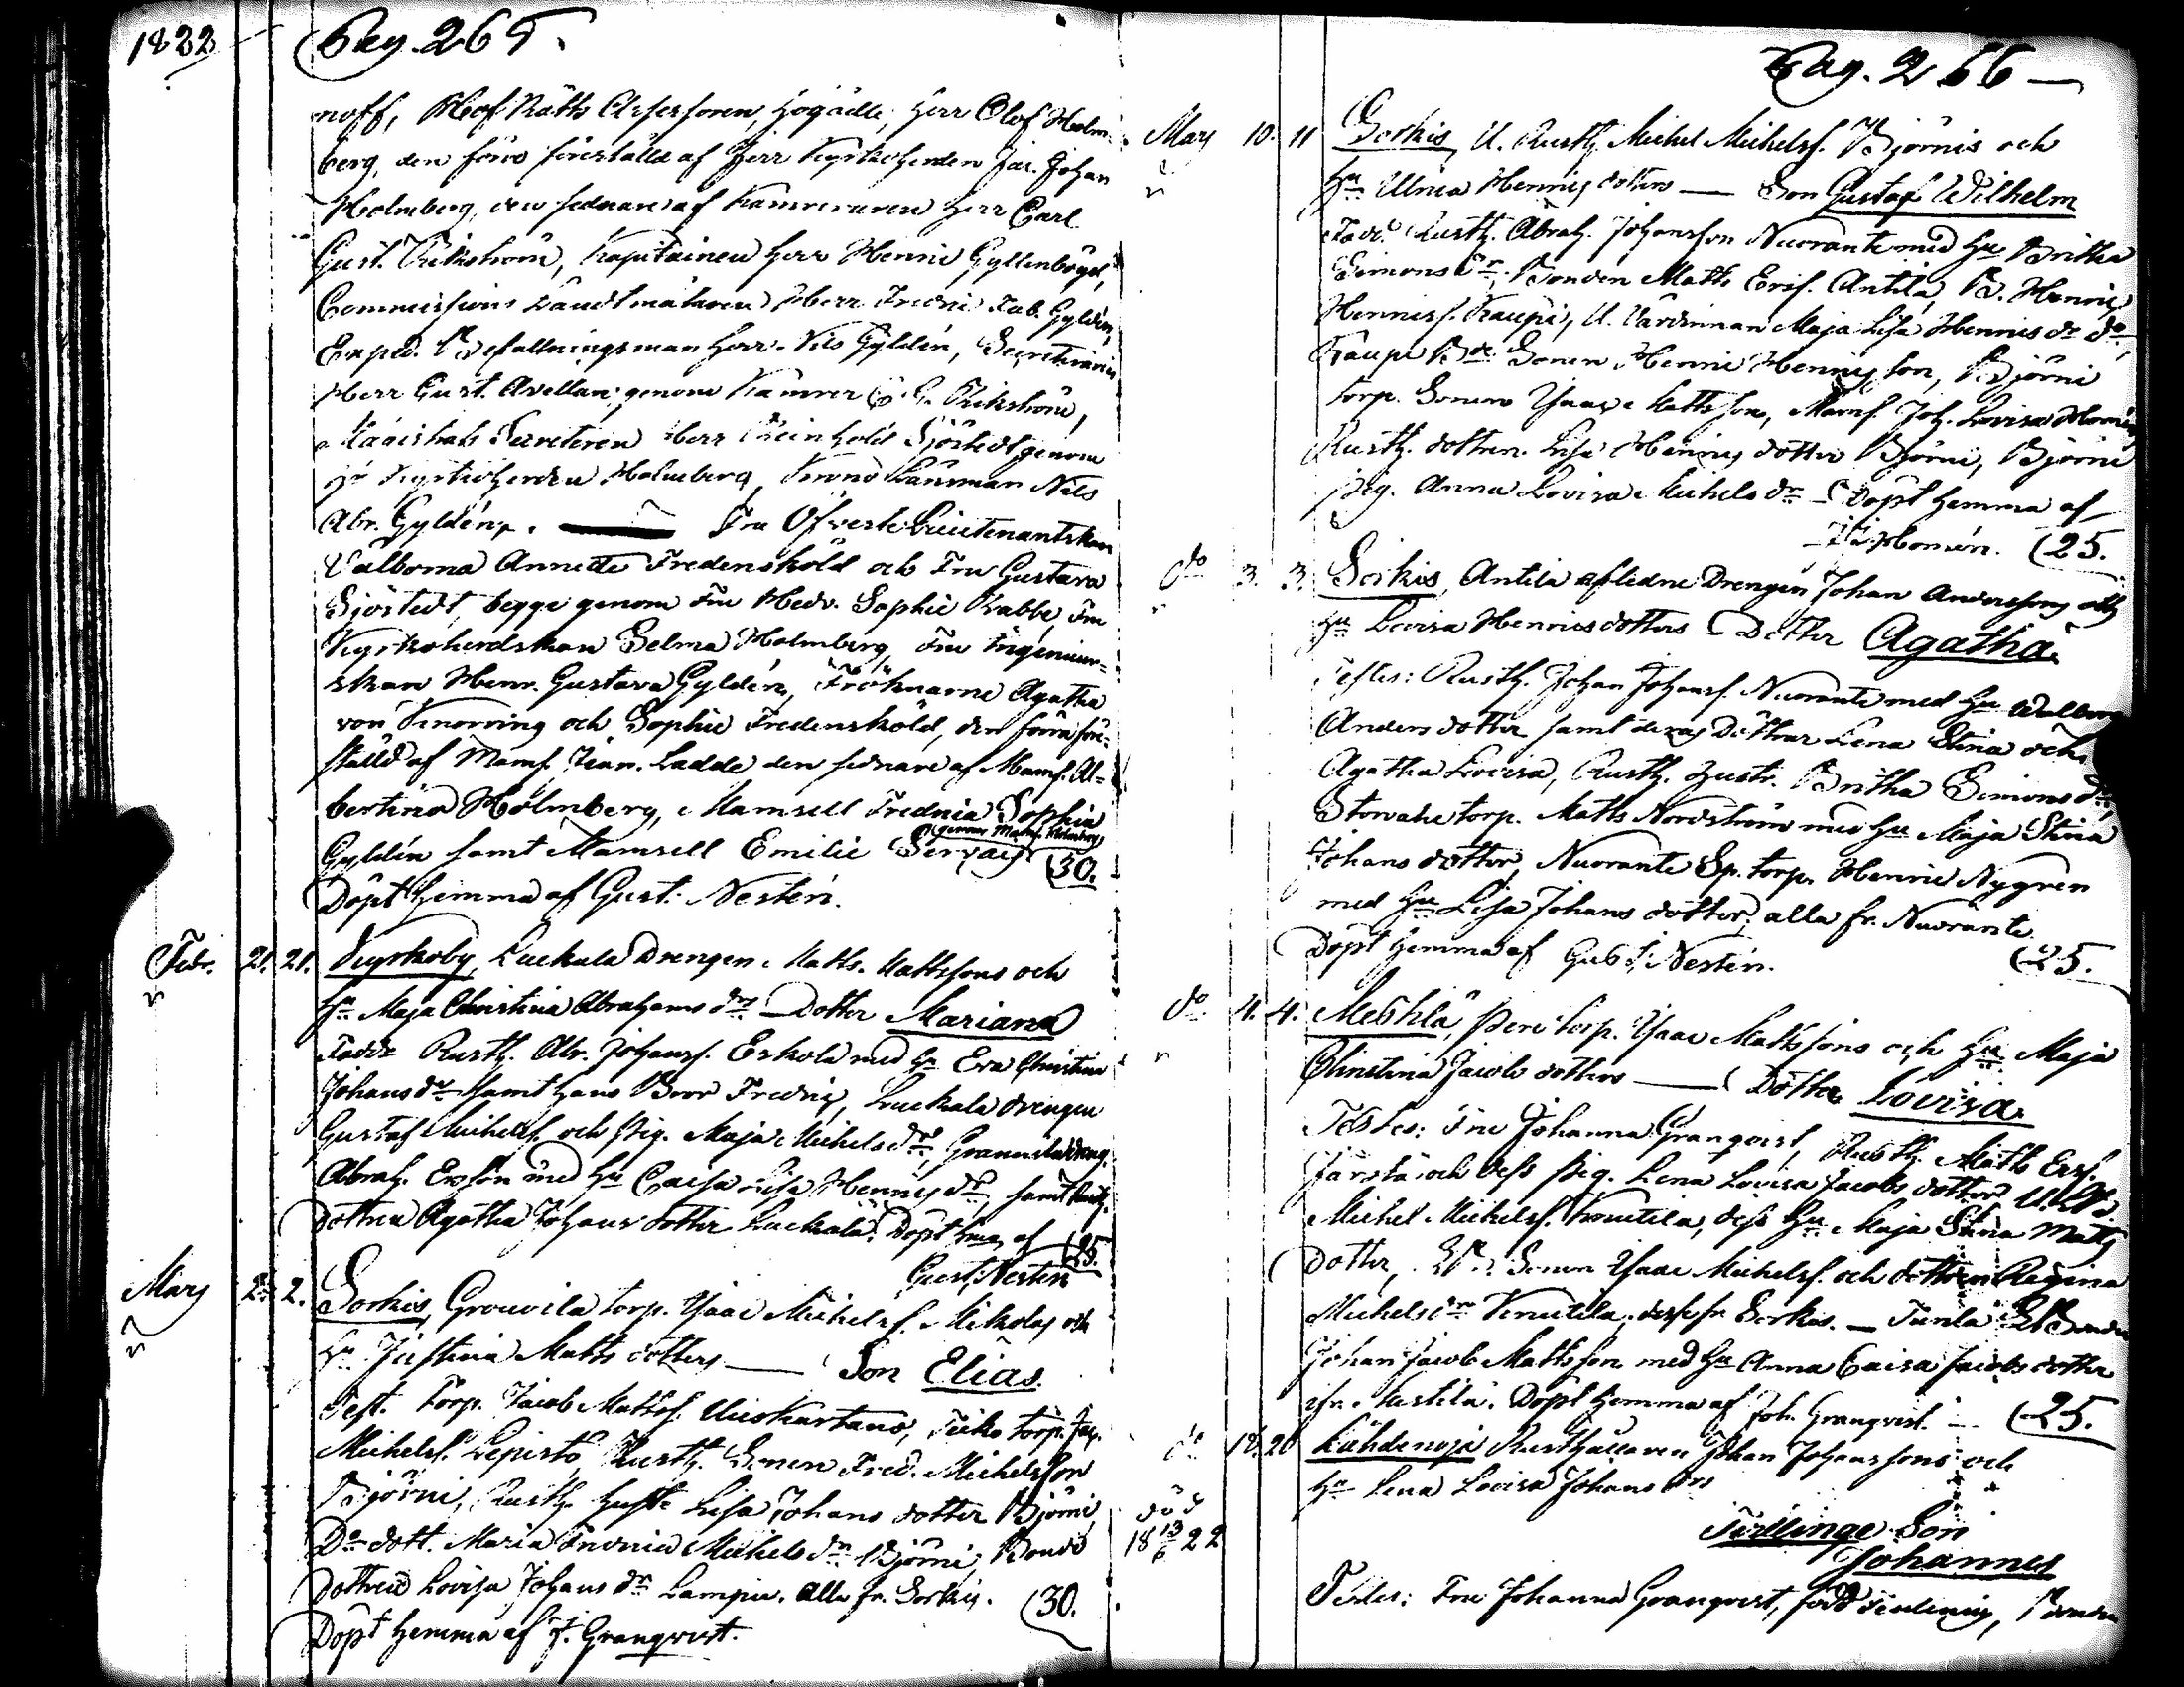 1822
Pag. 265.
noff, Hof Rätts Assessoren, Högädle, Herr Olof Holm-
berg, den förre föreställd af Herr Kyrkoherden Jac. Johan
Holmberg, den sednare af Kamreraren Herr Carl
Gust. Rikström, Kapitainen Herr Henric Gyllenbögel,
Commissions Landtmätaren Herr Fredric Fab. Gyldén,
Exped. Befallningsman Herr Nils Gyldén, Secreteraren
Herr Gust. Avellan genom Kamrer C. G. Rikström,
Secreteren Herr Reinhold Sjöstedt genom
Hr Kyrkoherden Holmberg, Krono Länsman Nils
Abr. Gyldén, . Fru Öfverste Lieutenantskan
Valborna Annette Fredensköld och Fru Gustava
Sjöstedt, begge genom Fru Hedv. Sophie Krabbe, Fru
Kyrkoherdskan Selma Holmberg, Fru Ingenieur-
skan Henr. Gustava Gyldén, Fröknarne Agatha
von Knorring och Sophie Fredensköld, den förra före-
ställd af Mams. Jean. Ladde den sednare af Mams. Al-
bertina Holmberg, Mamsell Fredrica Sophia
Gyldén samt Mamsell Emilie Servais (genom Mams. Holmberg) (30.
Döpt hemma af Gust. Nestén.
Febr. 21. 21. Kyrkoby, Luckala Drengen Matts Mattssons och
Hu Maja Christina Abrahams dr — Dotter Mariana
Fadd. Rusth. Abr. Johanss. Eskola med Hu Eva Christina
Johans dr samt hans Bror Fredric, Luckala drengen
Gustaf Michelss. och pig. Maja Michels dr, dreng.
Abrah. Ersson med Hu Caisa Lisa Henrics dr, samt Rusth.
dottren Agatha Johans dotter Luckala. Döpt hema af (25.
Gust. Nestén
Mars 2. 2. Sorkis, Grouvila torp. Isaac Michelss. Mikolas och
Hu Justina Matts dotters — Son Elias.
Test. Torp. Jacob Mattss. Uuskartano, torp. Jac.
Michelss. Lepistö, Rusth. Sonen Fred. Michelsson
Björni, Rusth. hustr. Lisa Johans dotter Björni,
Do dott. Maria Fredrica Michels dr Björni, Bonde
dottren Lovisa Johans dr Lampin. alla fr. Sorkis. (30.
Döpt hemma af J. Granqvist.
Pag. 266 —
Mars 10. 11 Sorkis, U. Rusth. Michel Michelss. Björnis och
Hu Ulrica Henrics dotters — Son Gustaf Wilhelm
Fadd. Rusth. Abrah. Johansson Nuorante med Hu Britha
Simons dr, Bonden Matts Erss. Antila, B. Henric
Henrics. Kaupi, U. Värdinnan Maja Lisa Henrics dr do,
Kaupi Bde Sonen Henric Henricsson, Björni
torp. Sonen Isaac Mattsson, Mams. Joh. Lovisa Homén
Rusth. dottren Lisa Henrics dotter Björni, Björni
pig. Anna Lovisa Michels dr — Döpt hemma af
Homén. (25.
do 3. 3. Sorkis, Antila aflidne Drengen Johan Anderssons och
Hu Lovisa Henrics dotters — Dotter Agatha.
Testes: Rusth. Johan Johanss. Nuorante med Hu Walborg
Anders dotter samt deras Döttrar Lena Stina och
Agatha Lovisa, Rusth. hustr. Britha Simons dr,
torp. Matts Nordström med Hu Maja Stina
Johans dotter, Nuorante Sp. torp. Henric Nygrén
med Hu Lisa Johans dotter, alla fr. Nuorante.
Döpt hemma af Gust. Nestén. (25.
do 4. 4. torp. Isaac Mattssons och Hu Maja
Christina Jacobs dotters — Dotter Lovisa.
Testes: Fru Johanna Granqvist, Rusth. Matts Erss.
Järstä och dess pig. Lena Lovisa Jacobs dotter,
Michel Michelss. Knuutila, dess Hu Maja Stina Matts
dotter, Sonen Isaac Michelss. och dottren Regina
Michels dr Knuutila, desse fr. Sorkis. —
Johan Jacob Mattsson med Hu Anna Caisa Jacobs dotter
ifr. Mustila. Döpt hemma af Joh. Granqvist. — (25.
do 18. 20 Lähdenoja Rusthållaren Johan Johanssons och
Hu Lena Lovisa Johans drs
Tvillinge Son
Johannes
död
18 13/6 22
Testes: Fru Johanna Granqvist, född Idenling,